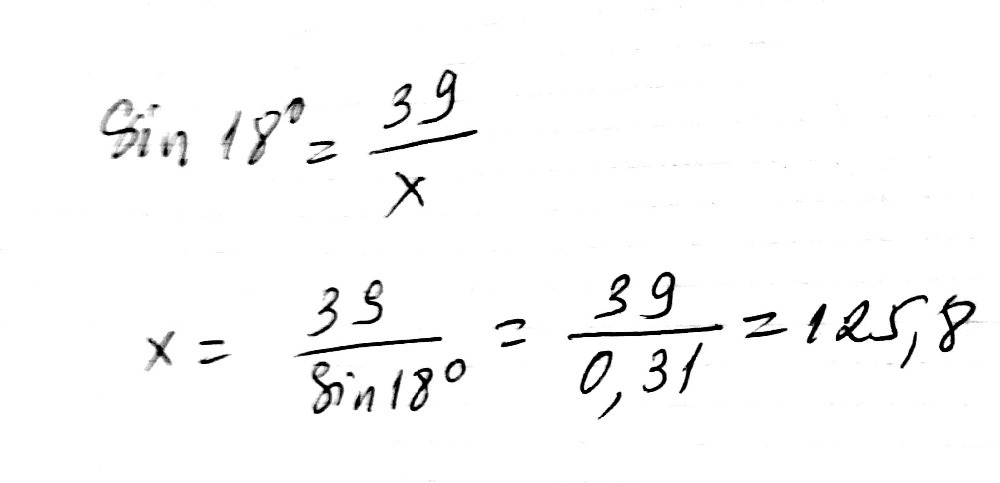 Sin 18° = 39/x
x = 39/Sin 18° = 39/0,31 = 125,8